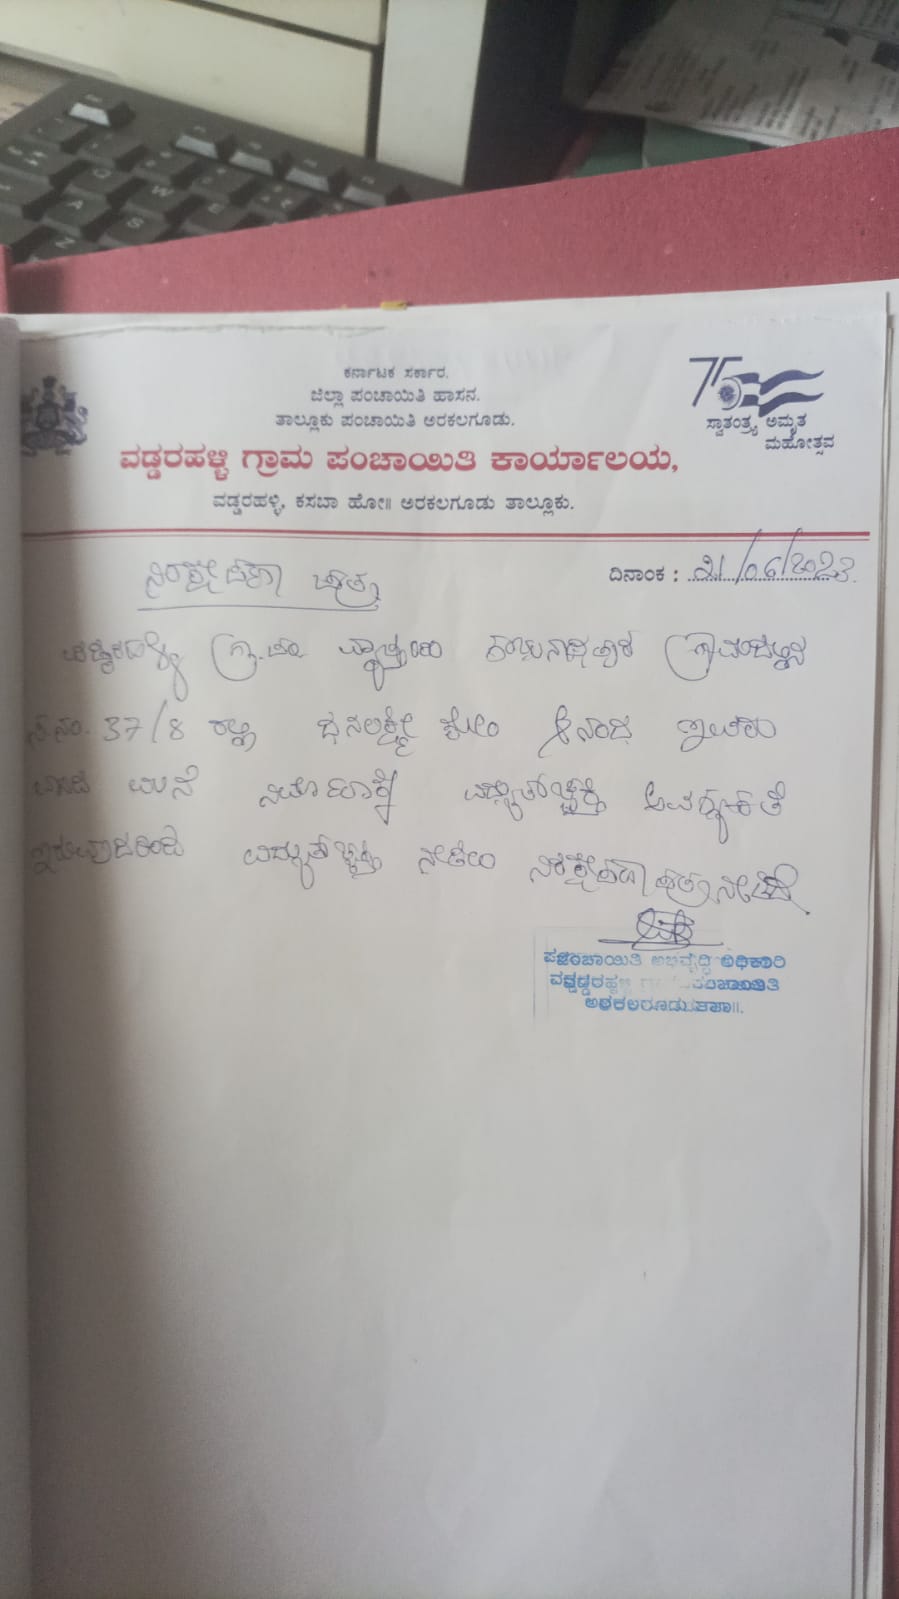 ಕರ್ನಾಟಕ ಸರ್ಕಾರ.
ಜಿಲ್ಲಾ ಪಂಚಾಯಿತಿ ಹಾಸನ.
ತಾಲ್ಲೂಕು ಪಂಚಾಯಿತಿ ಅರಕಲಗೂಡು.
75
ಸ್ವಾತಂತ್ರ್ಯ ಅಮೃತ
ಮಹೋತ್ಸವ
ವಡ್ಡರಹಳ್ಳಿ ಗ್ರಾಮ ಪಂಚಾಯಿತಿ ಕಾರ್ಯಾಲಯ,
ವಡ್ಡರಹಳ್ಳಿ, ಕಸಬಾ ಹೋ॥ ಅರಕಲಗೂಡು ತಾಲ್ಲೂಕು.
ದಿನಾಂಕ : 21/06/2023.
ನಿರಾಕ್ಷೇಪಣಾ ಪತ್ರ
ವಡ್ಡರಹಳ್ಳಿ ಗ್ರಾ.ಪಂ ವ್ಯಾಪ್ತಿಯ
ಸ.ನಂ. 37/8 ರಲ್ಲಿ ಧನಲಕ್ಷ್ಮೀ ಕೋಂ ಆನಂದ ಇವರು
ವಾಸದ ಮನೆ ವಿದ್ಯುತ್ ಅವಶ್ಯಕತೆ
ಇರುವುದರಿಂದ ನೀಡಲು ನಿರಾಕ್ಷೇಪಣಾ ಪತ್ರ ನೀಡಿದೆ
ಪಂಚಾಯಿತಿ ಅಭಿವೃದ್ಧಿ ಅಧಿಕಾರಿ
ವಡ್ಡರಹಳ್ಳಿ ಗ್ರಾಮ ಪಂಚಾಯಿತಿ
ಅರಕಲಗೂಡು ತಾ॥.